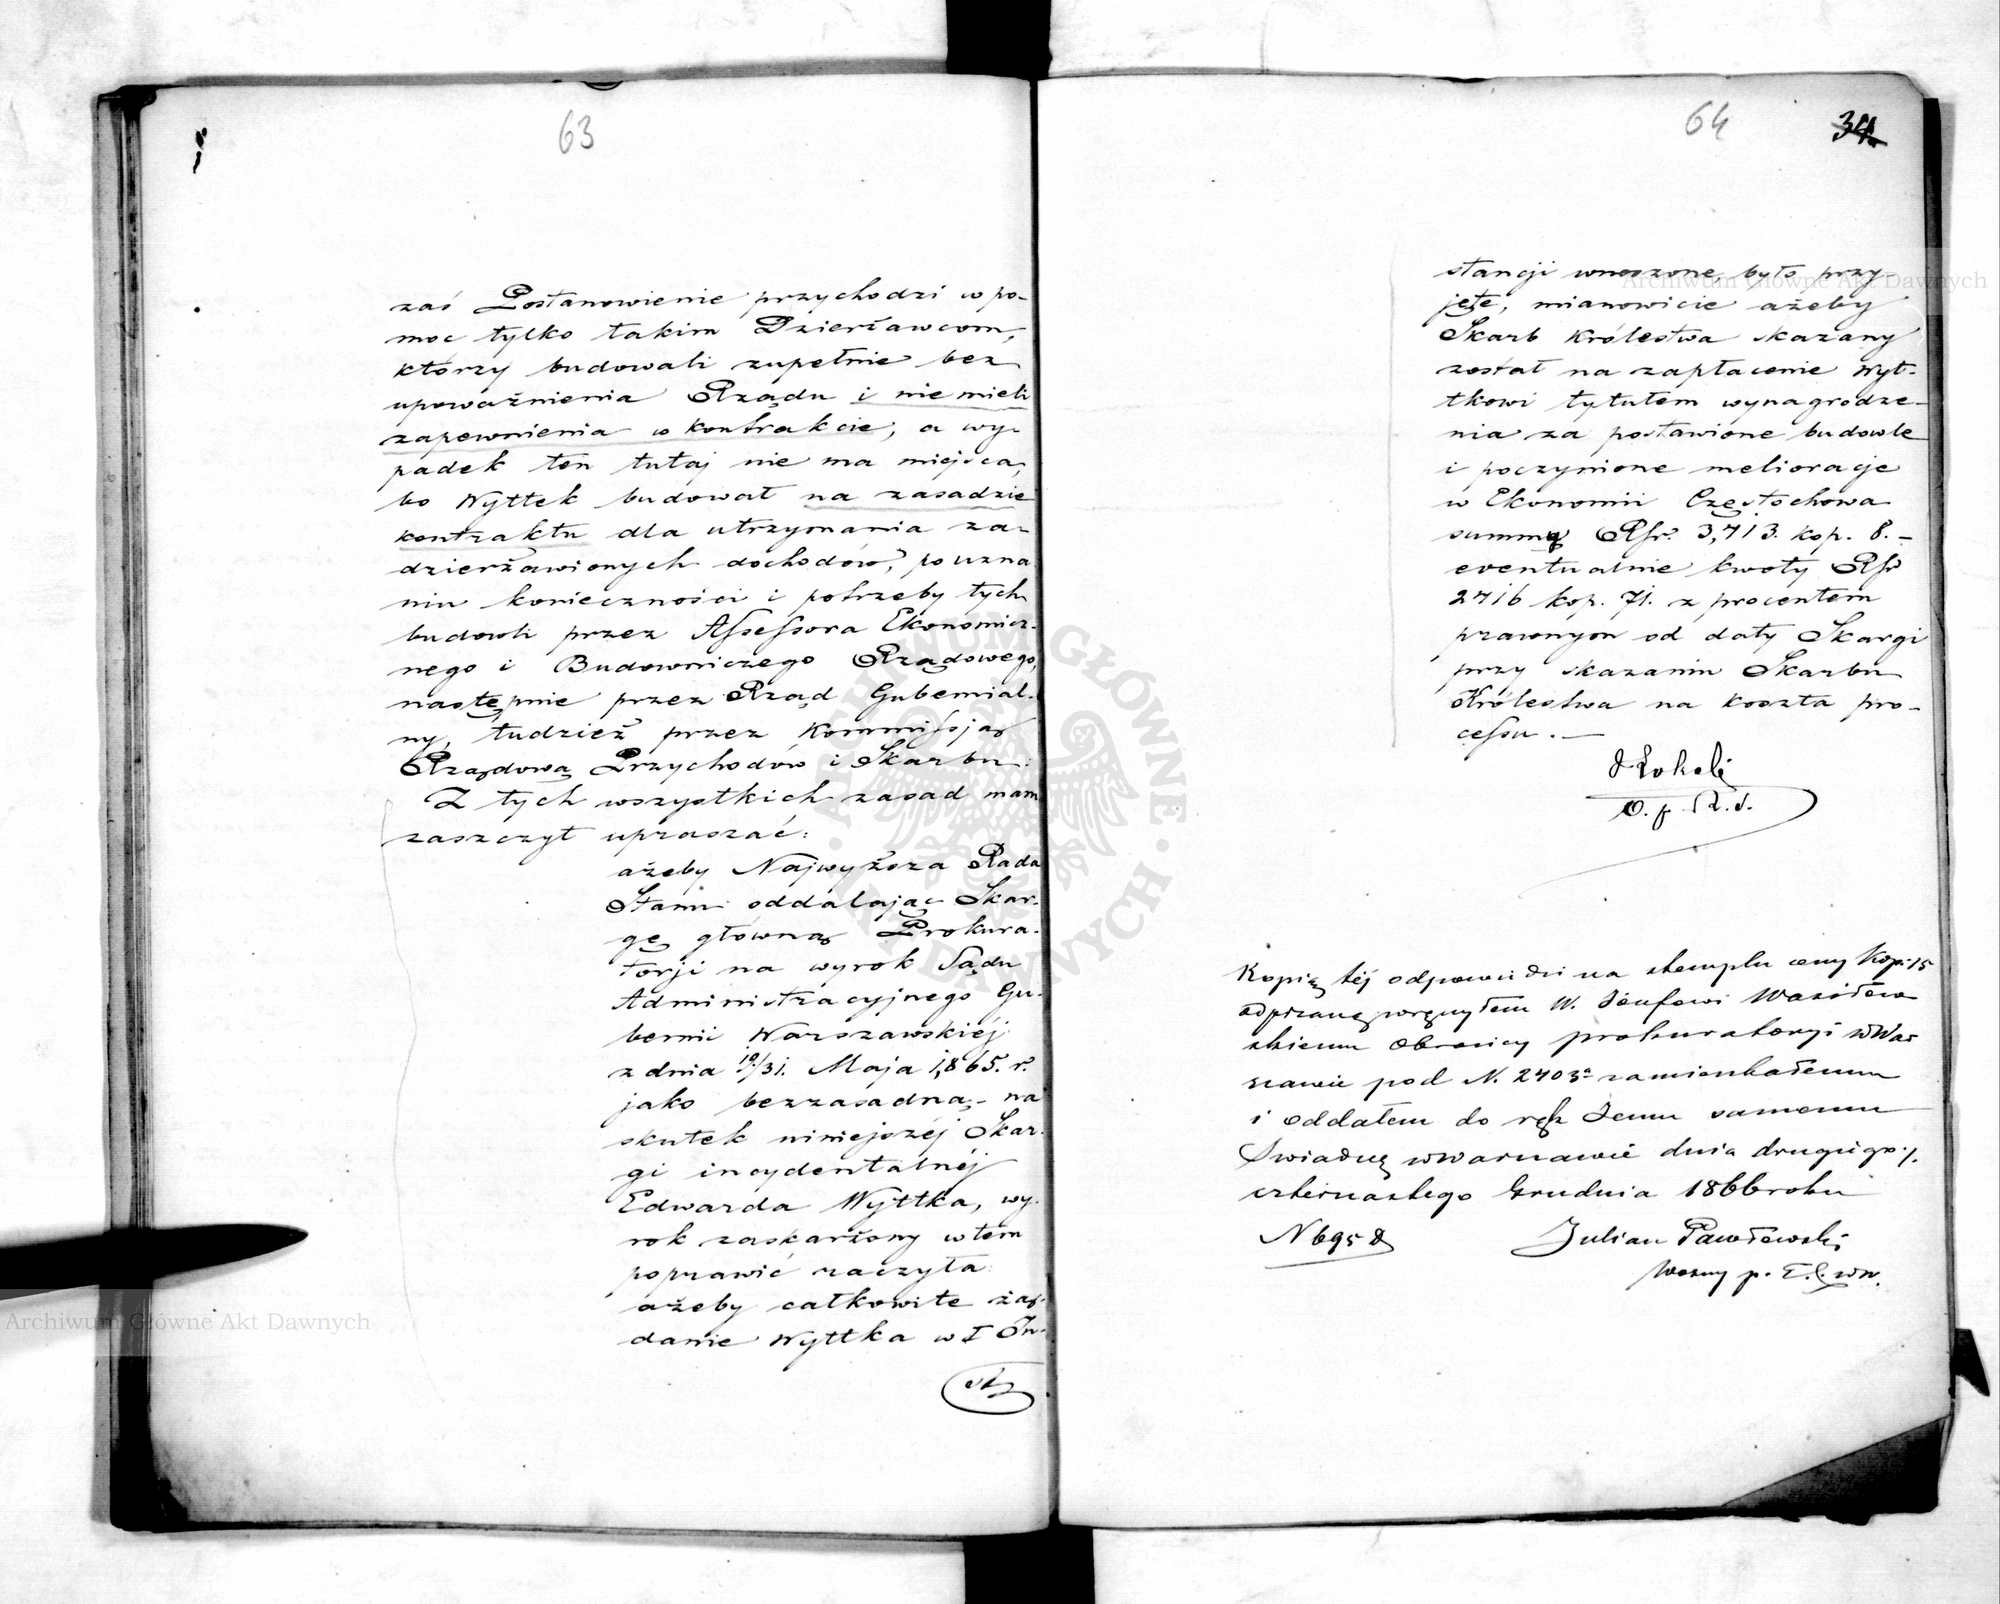 63
zaś Postanowienie przychodzi w po-
moc tylko takim Dzierżawcom,
którzy budowali zupełnie bez
upoważnienia Rządu i nie mieli
zapewnienia w kontrakcie, a wy-
padek ten tutaj nie ma miejsca,
bo Wyttek budował na zasadzie
kontraktu dla utrzymania za-
dzierżawionych dochodów, po uzna
niu konieczności i potrzeby tych
budowli przez Assessora Ekonomicz-
nego i Budowniczego Rządowego,
następnie przez Rząd Gubernial-
ny, tudzież przez Kommissją
Rządową Przychodów i Skarbu.
Z tych wszystkich zasad mam
zaszczyt upraszać:
ażeby Najwyższa Rada
Stanu oddalając Skar-
gę główną Prokura-
torji na wyrok Sądu
Administracyjnego Gu-
bernii Warszawskiéj
z dnia 19/31. Maja 1865. r.
jako bezzasadną, - na
skutek niniejszéj Skar-
gi incydentalnéj
Edwarda Wyttka, wy-
rok zaskarżony w tem
poprawić raczyła
ażeby całkowite żą-
danie Wyttka w I In-
64
34
stancji wnoszone, było przy-
jęte, mianowicie ażeby
Skarb Królestwa skazany
został na zapłacenie Wyt-
tkowi tytułem wynagrodze-
nia za postawione budowle
i poczynione melioracje
w Ekonomii Częstochowa
summy Rsr. 3,713. kop. 8. -
eventualnie kwoty Rsr
2716 kop. 71. z procentem
prawnym od daty Skargi
przy skazaniu Skarbu
Królestwa na koszta pro-
cessu. —
O. p. R. S.
Kopię téj odpowiedzi na stemplu ceny kop. 15
W. Józefowi Wasiłew
skiemu Obrońcy prokuratoryi w War
szawie pod N. 2403a zamieszkałemu
i oddałem do rąk Jemu samemu
Świadczę w Warszawie dnia drugiego /.
czternastego Grudnia 1866 roku
N 695
Julian Pawłewski
Woźny p.
Archiwum Główne Akt Dawnych
Archiwum Główne Akt Dawnych
ARCHIWUM GŁÓWNE AKT DAWNYCH